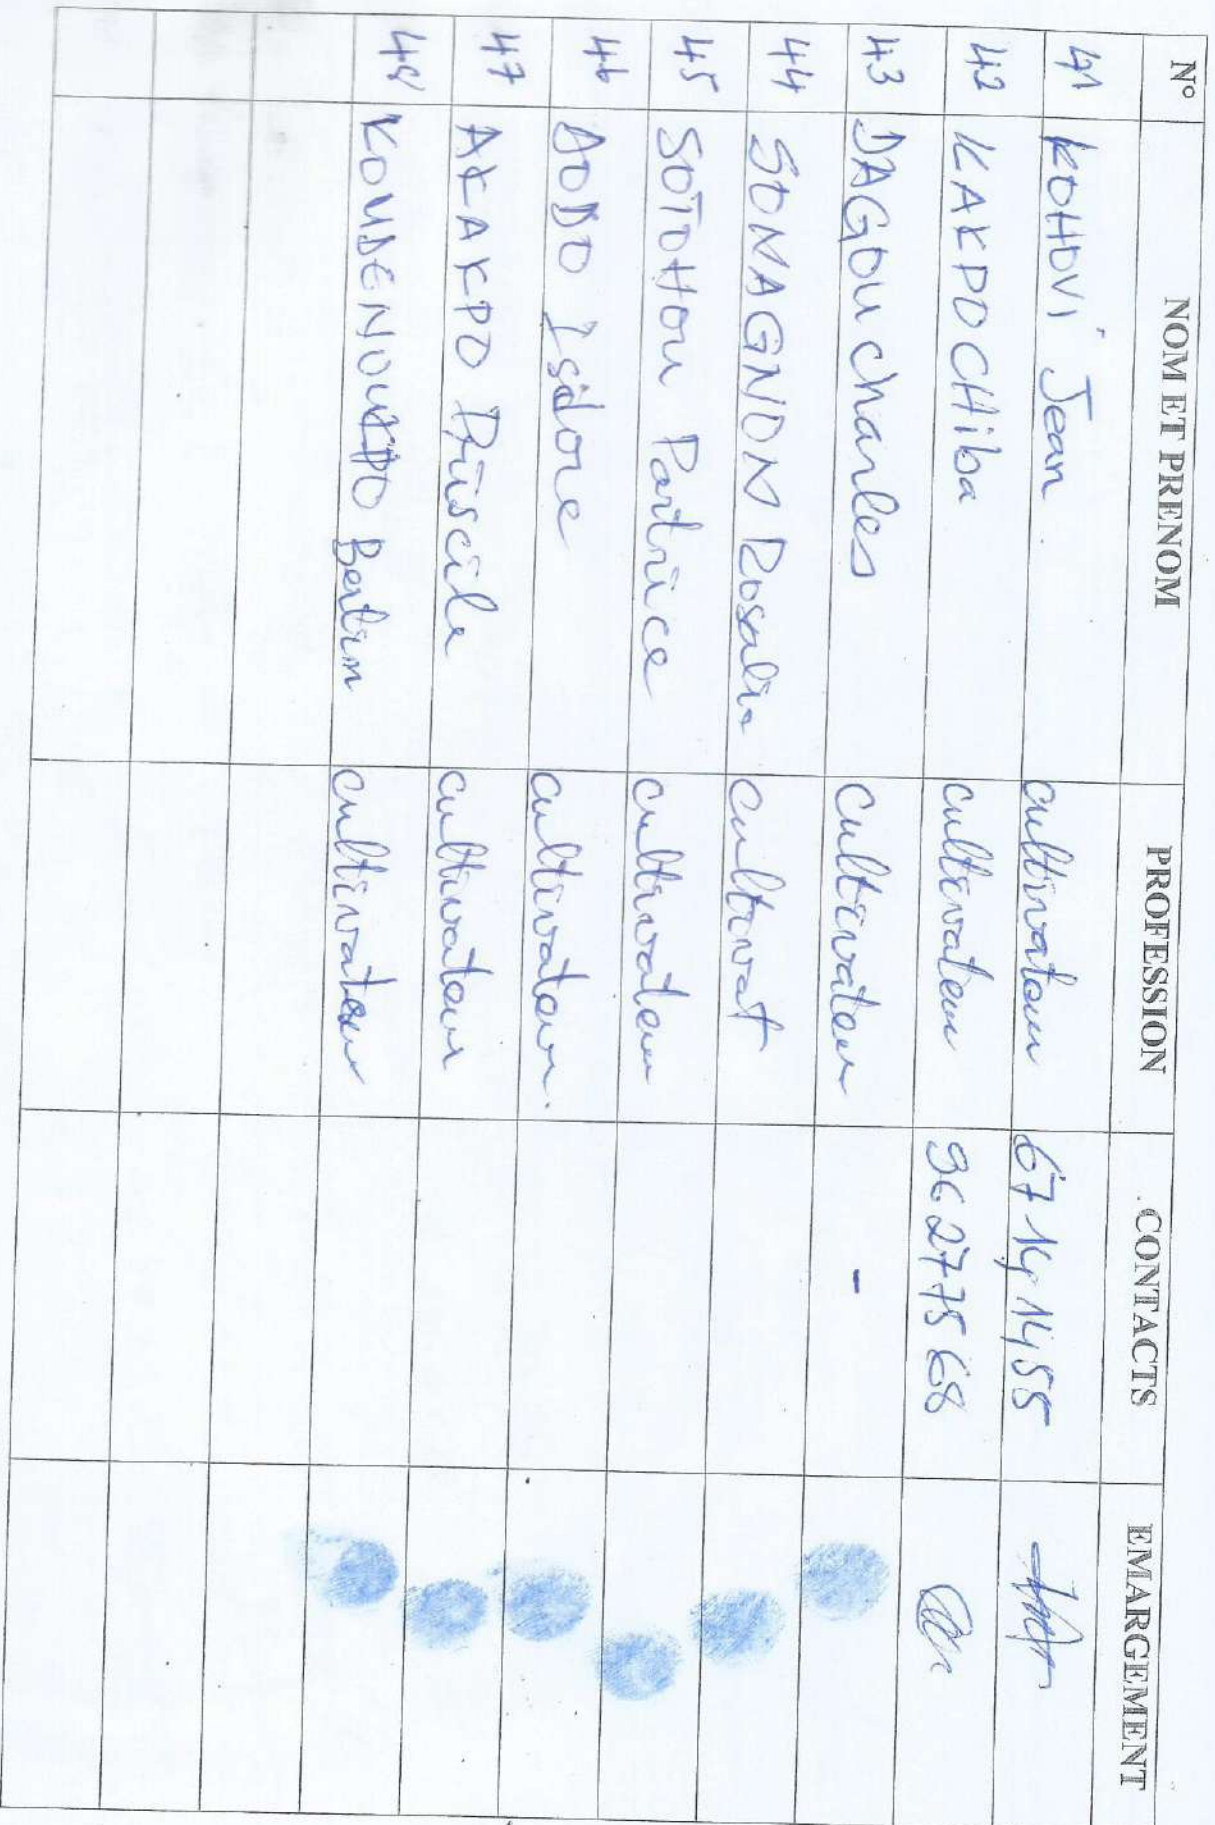 N° NOM ET PRENOM PROFESSION CONTACTS EMARGEMENT
41 KOHOVI Jean cultivateur 67 14 14 55
42 KAKPO CHiba cultivateur 96 27 75 68
43 DAGOU Charles cultivateur -
44 SONAGNON Rosalin cultivat
45 SOTOHOU Patrice cultivateur
46 DODO Isidore cultivateur.
47 AKAKPO Priscile cultivateur
48 KOUDENOUKPO Bertin cultivateur